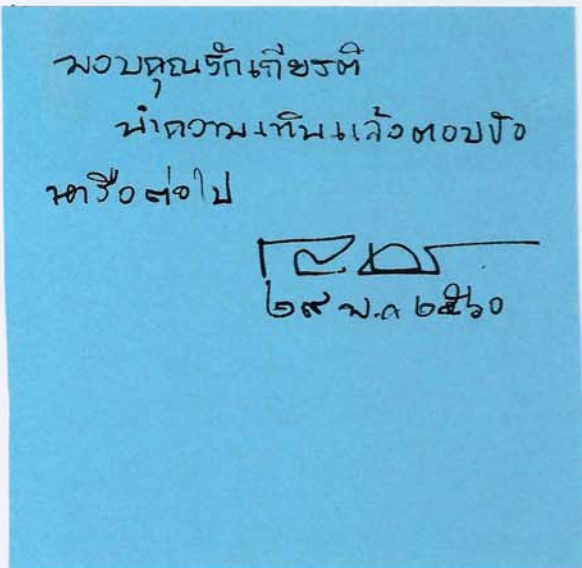 มอบคุณรักเกียรติ
นำความเห็นแจ้งตอบข้อ
หารือต่อไป
๒๙ พ.ค ๒๕๖๐